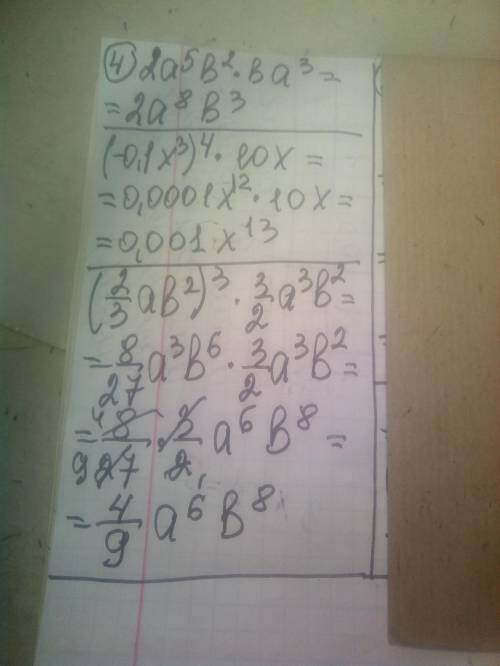 ④ 2a⁵b²·ba³=
=2a⁸b³
(-0,1x³)⁴·10x=
=0,0001x¹²·10x=
=0,001x¹³
(2/3ab²)³·3/2a³b²=
=8/27a³b⁶·3/2a³b²=
=8/27·3/2a⁶b⁸=
=4/9a⁶b⁸